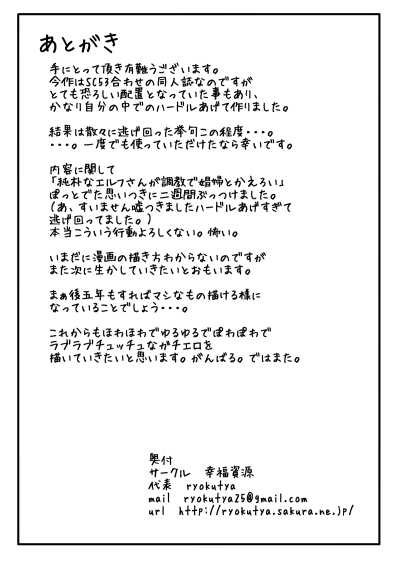 あとがき
手にとって頂き有難うございます。
今作はSC53合わせの同人誌なのですが
とても恐ろしい配置となっていた事もあり、
かなり自分の中でのハードルあげて作りました。
結果は散々に逃げ回った挙句この程度・・・。
・・・。一度でも使っていただけたなら幸いです。
内容に関して
「純朴なエルフさんが調教で娼婦とかえろい」
ぱっとでた思いつきに二週間ぶっつけました。
（あ、すいません嘘つきましたハードルあげすぎて
逃げ回ってました。）
本当こういう行動よろしくない。怖い。
いまだに漫画の描き方わからないのですが
また次に生かしていきたいとおもいます。
まぁ後五年もすればマシなもの描ける様に
なっていることでしょう・・・。
これからもほわほわでゆるゆるでぽわぽわで
ラブラブチュッチュなガチエロを
描いていきたいと思います。がんばる。ではまた。
奥付
サークル 幸福資源
代表 ryokutya
mail ryokutya25@gmail.com
url http://ryokutya.sakura.ne.jp/